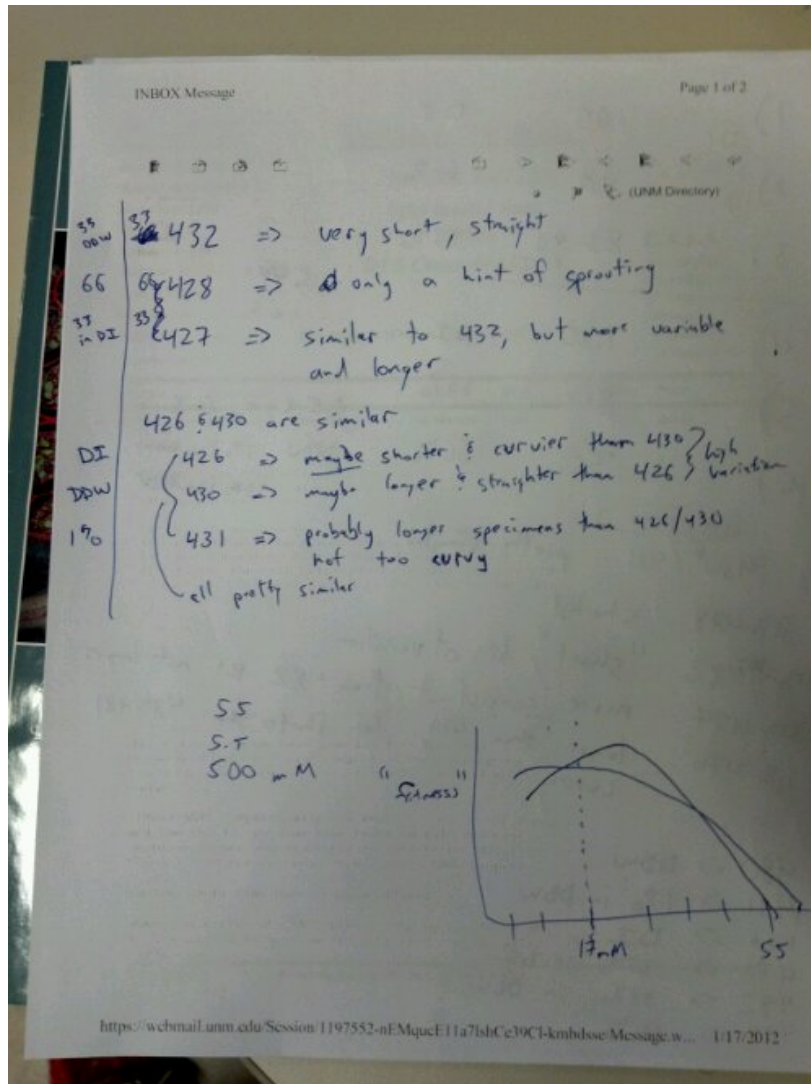 INBOX Message Page 1 of 2
(UNM Directory)
33 DDW 33 432 => very short, straight
66 66 428 => only a hint of sprouting
33 in DI 33 427 => similar to 432, but more variable
and longer
426 & 430 are similar
DI 426 => maybe shorter & curvier than 430 } high
DDW 430 => maybe longer & straighter than 426 } variation
1% 431 => probably longer specimens than 426/430
not too curvy
all pretty similar
55
5.5
500 mM "fitness"
17mM 55
https://webmail.unm.edu/Session/1197552-nEMqucE11a7lshCe39CI-kmbdsse/Message.w... 1/17/2012